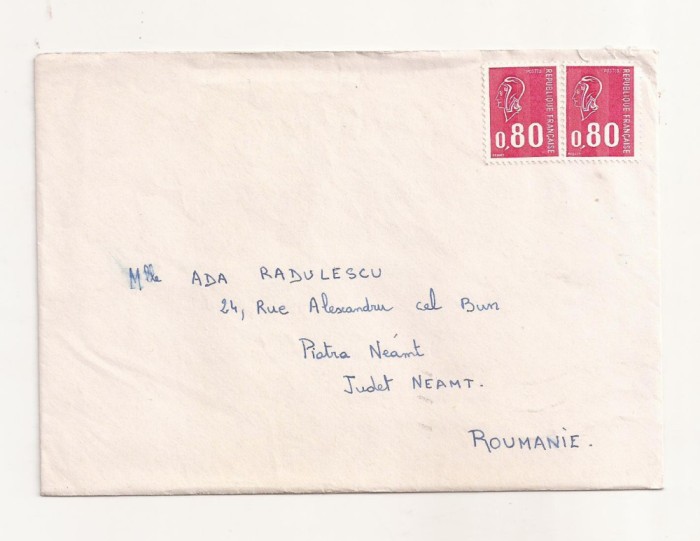 POSTES
REPUBLIQUE FRANÇAISE
0,80
POSTES
REPUBLIQUE FRANÇAISE
0,80
Mlle ADA RADULESCU
24, Rue Alexandru cel Bun
Piatra Neámt
Judet NEAMT.
ROUMANIE.